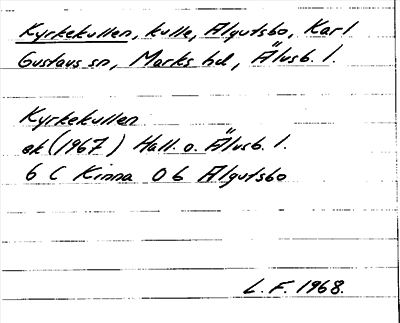 Kyrkekullen, kulle, Algutsbo, Karl
Gustavs sn, Marks hd, Älvsb. l.
Kyrkekullen
ek (1967) Hall. o. Älvsb. l.
6 C Kinna 0 b Algutsbo
L.F. 1968.